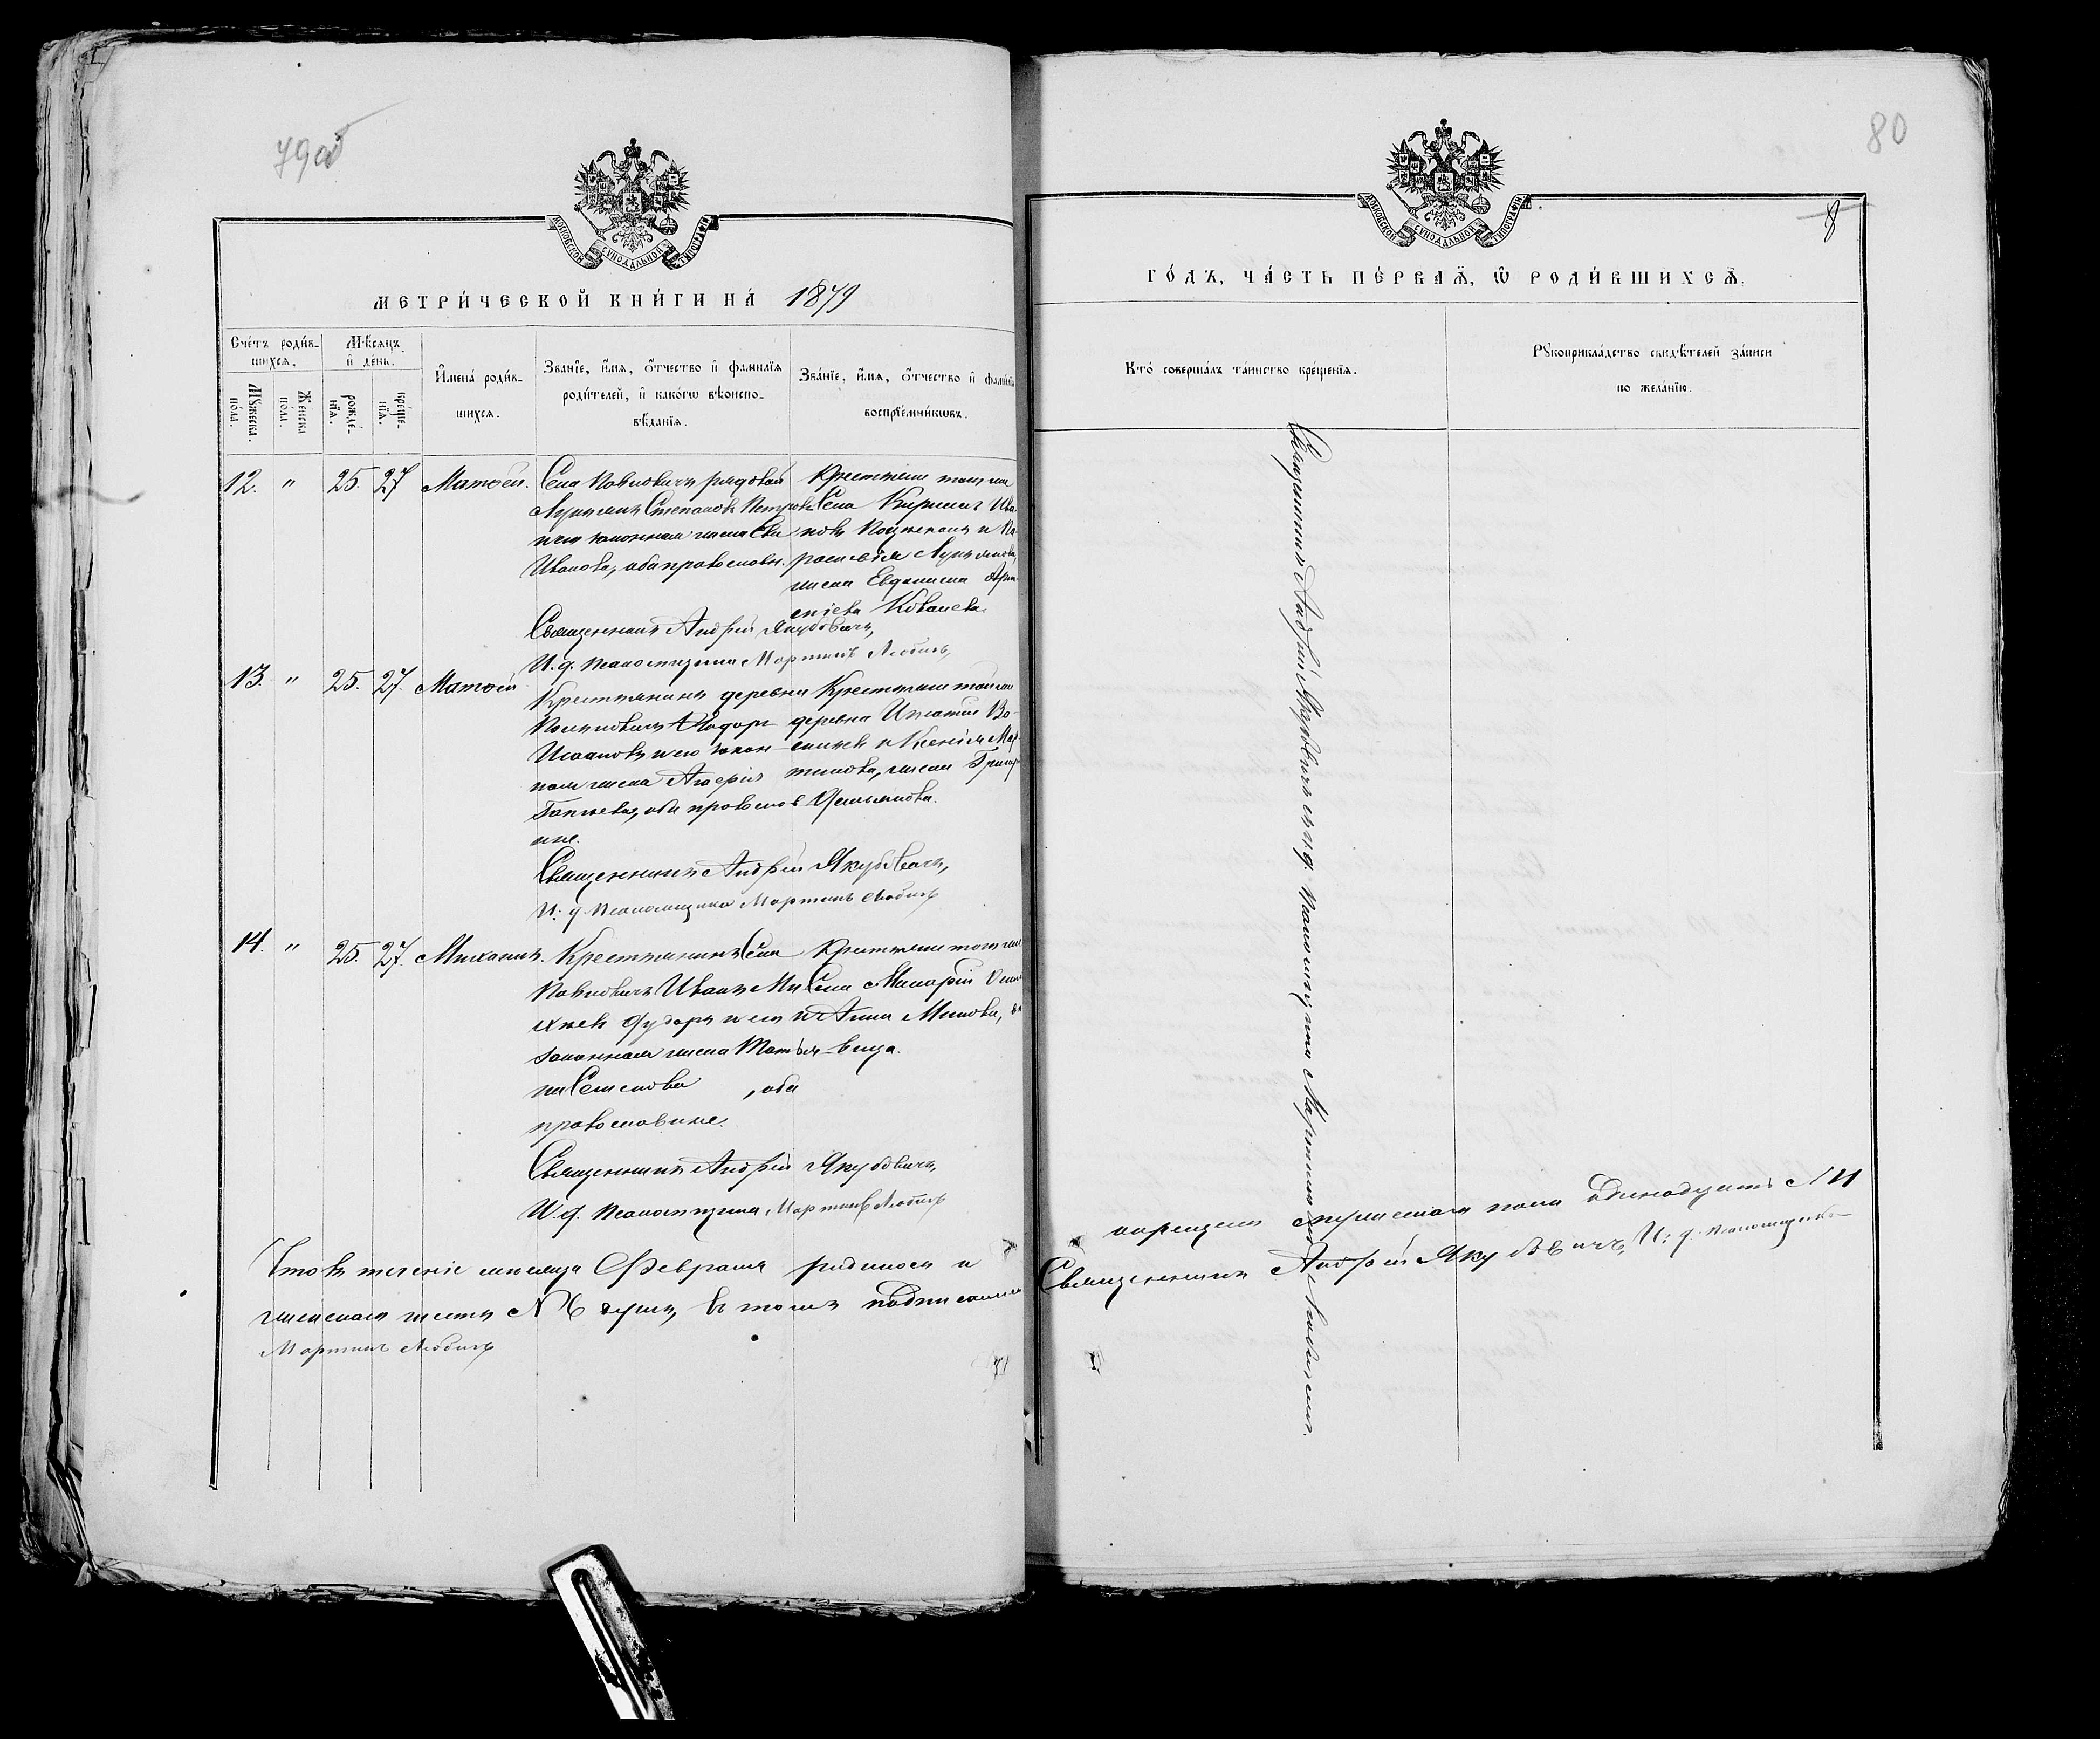 79об
МОСКОВСКОЙ СѴНОДАЛЬНОЙ ТИПОГРАФІИ
МЕТРИ́ЧЕСКОЙ КНИ́ГИ НА́ 1879
Сче́тъ роди́в-
шихся.
Мѣ́сяцъ
и҆ де́нь.
Мꙋ́жеска по́ла.
Же́нска по́ла.
рожде́-
нїѧ.
креще́-
нїѧ.
И҆мена̀ роди́в-
шихся.
Зва́нїе, и҆́мѧ, ѻ҆́тчество и҆ фамилїѧ
роди́телей, и҆ како́гѡ вѣ́роиспо-
вѣ́данїѧ.
Зва́нїе, и҆́мѧ, ѻ҆́тчество и҆ фами́лїѧ
воспрїе́мникѡвъ.
12. " 25. 27 Матөей.
Села Повловичъ рядовой
Лукьянъ Степановъ Петровъ
и его законная жена Ева
Иванова, оба православн.
Крестьяне того же
Села Кирилъ Ива-
новъ и Па-
расковѣя Лукьянова,
жена
Ковалева.
Священникъ Андрей Якубовичъ,
И. д. псаломщика Мартинъ Любичъ
13. " 25. 27. Матөей
Крестьянинъ деревни
и его закон-
ная жена
оба православ
ные.
Крестьяне той же
деревни Игнатій Ва-
и Ксенія Мар-
тинова, жена Григор
Священникъ Андрей Якубовичъ,
И. д. псаломщика Мартинъ Любичъ
14. " 25. 27. Михаилъ.
Крестьянинъ Села
Повловичъ Иванъ Ми
и его
законная жена Татья-
на Семенова , оба
православные.
Крестьяне того же
Села Макарій
и Анна Минова, в
вица.
Священникъ Андрей Якубовичъ,
И. д. псаломщика Мартинъ Любичъ
Что въ теченіе мѣсяца Февраля родилось и
женскаго шесть № 6 душъ, въ томъ подписались
Мартинъ Любичъ
80
8
МОСКОВСКОЙ СѴНОДАЛЬНОЙ ТИПОГРАФІИ
ГО́ДЪ, ЧА́СТЬ ПЕ́РВАѦ, Ѡ҆ РОДИ́ВШИХСѦ.
Кто̀ соверша́лъ та́инство креще́нїѧ.
Рꙋкоприкла́дство свидѣ́телей за́писи
по жела́нїю.
Священникъ Андрей Якубовичъ съ и. д. псаломщика Мартиномъ Любичемъ.
окрещено мужескаго пола одинадцать № 11
Священникъ Андрей Якубовичъ, И: д. псаломщика